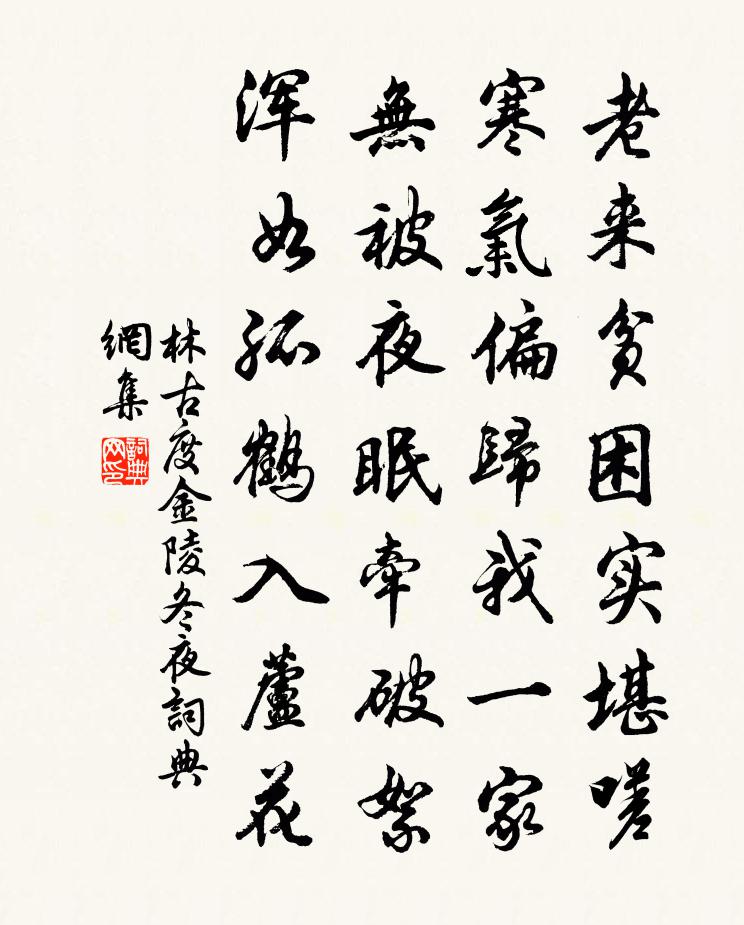 老来贫困实堪嗟
寒氣偏歸我一家
無被夜眠牽破絮
浑如孤鶴入蘆花
林古度金陵冬夜詞典
網集
詞典
网印